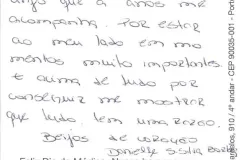 anjo que a anos me
acompanha. POR ESTAR
ao meu lado em mo
mentos muito importantes.
E acima de tudo por
conseguir me mostrar
que tudo tem uma RAZÃO.
Beijos de coração
Danielle
910 / 4º andar - CEP 90035-001 - Porto